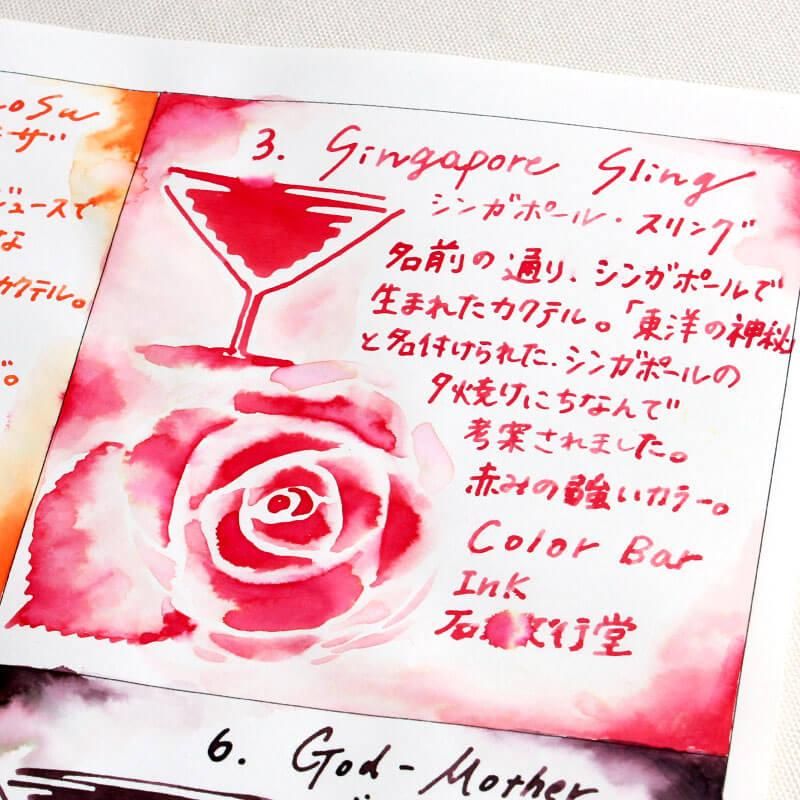 oSu
ーザ
ジュースで
な
カクテル。
。
3. Singapore Sling
シンガポール・スリング
名前の通り、シンガポールで
生まれたカクテル。「東洋の神秘」
と名付けられた、シンガポールの
夕焼けにちなんで
考案されました。
赤みの強いカラー。
Color Bar
Ink
石 文行堂
6. God-Mother